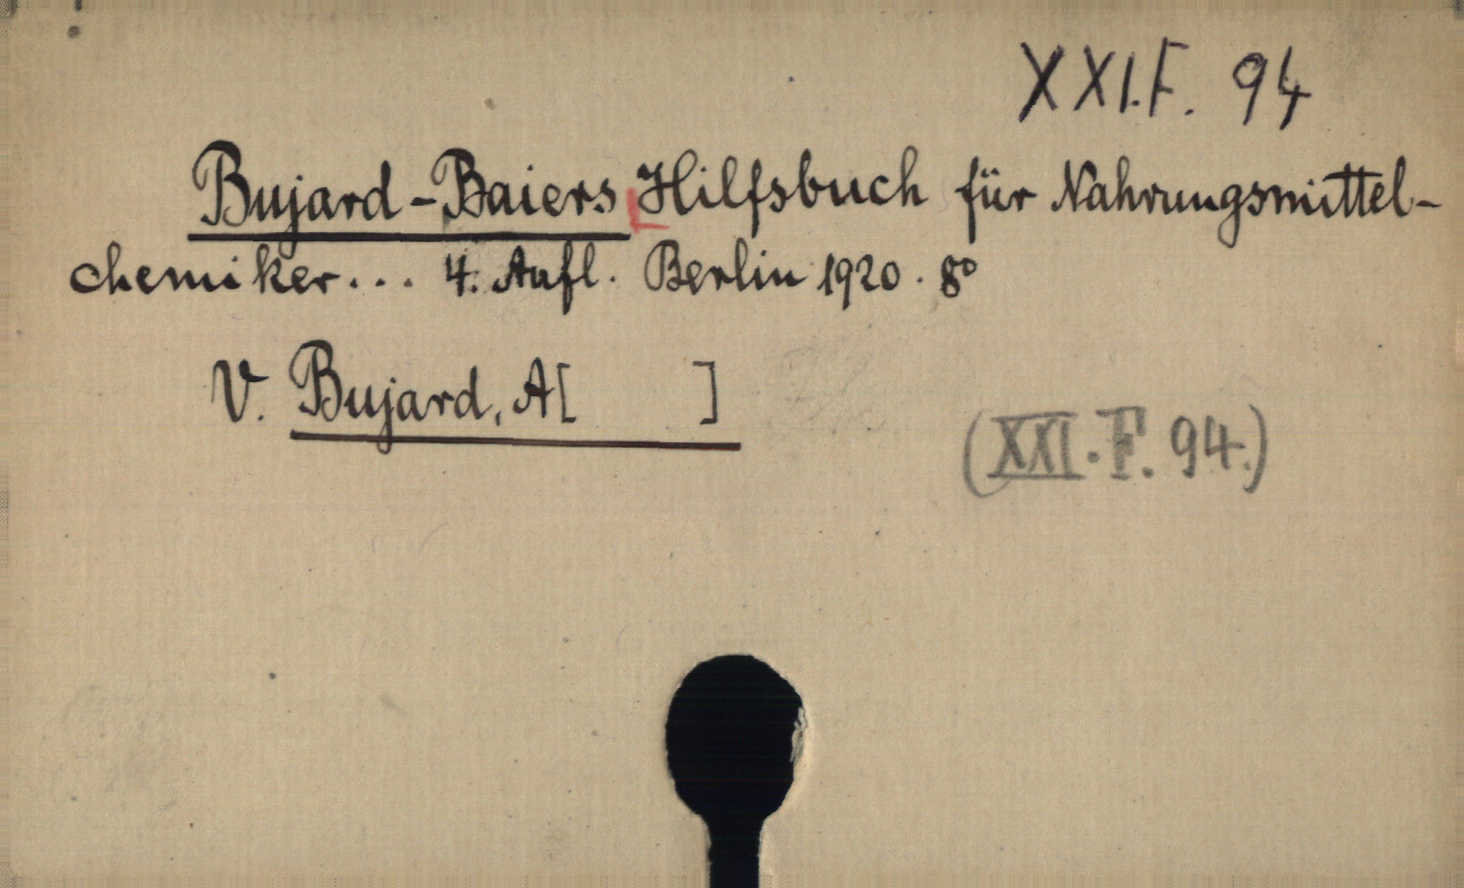 XXI.F. 94
Bujard-Baiers Hilfsbuch für Nahrungsmittel-
chemiker... 4. Aufl. Berlin 1920. 8°
V. Bujard, A[ ]
(XXI.F. 94.)